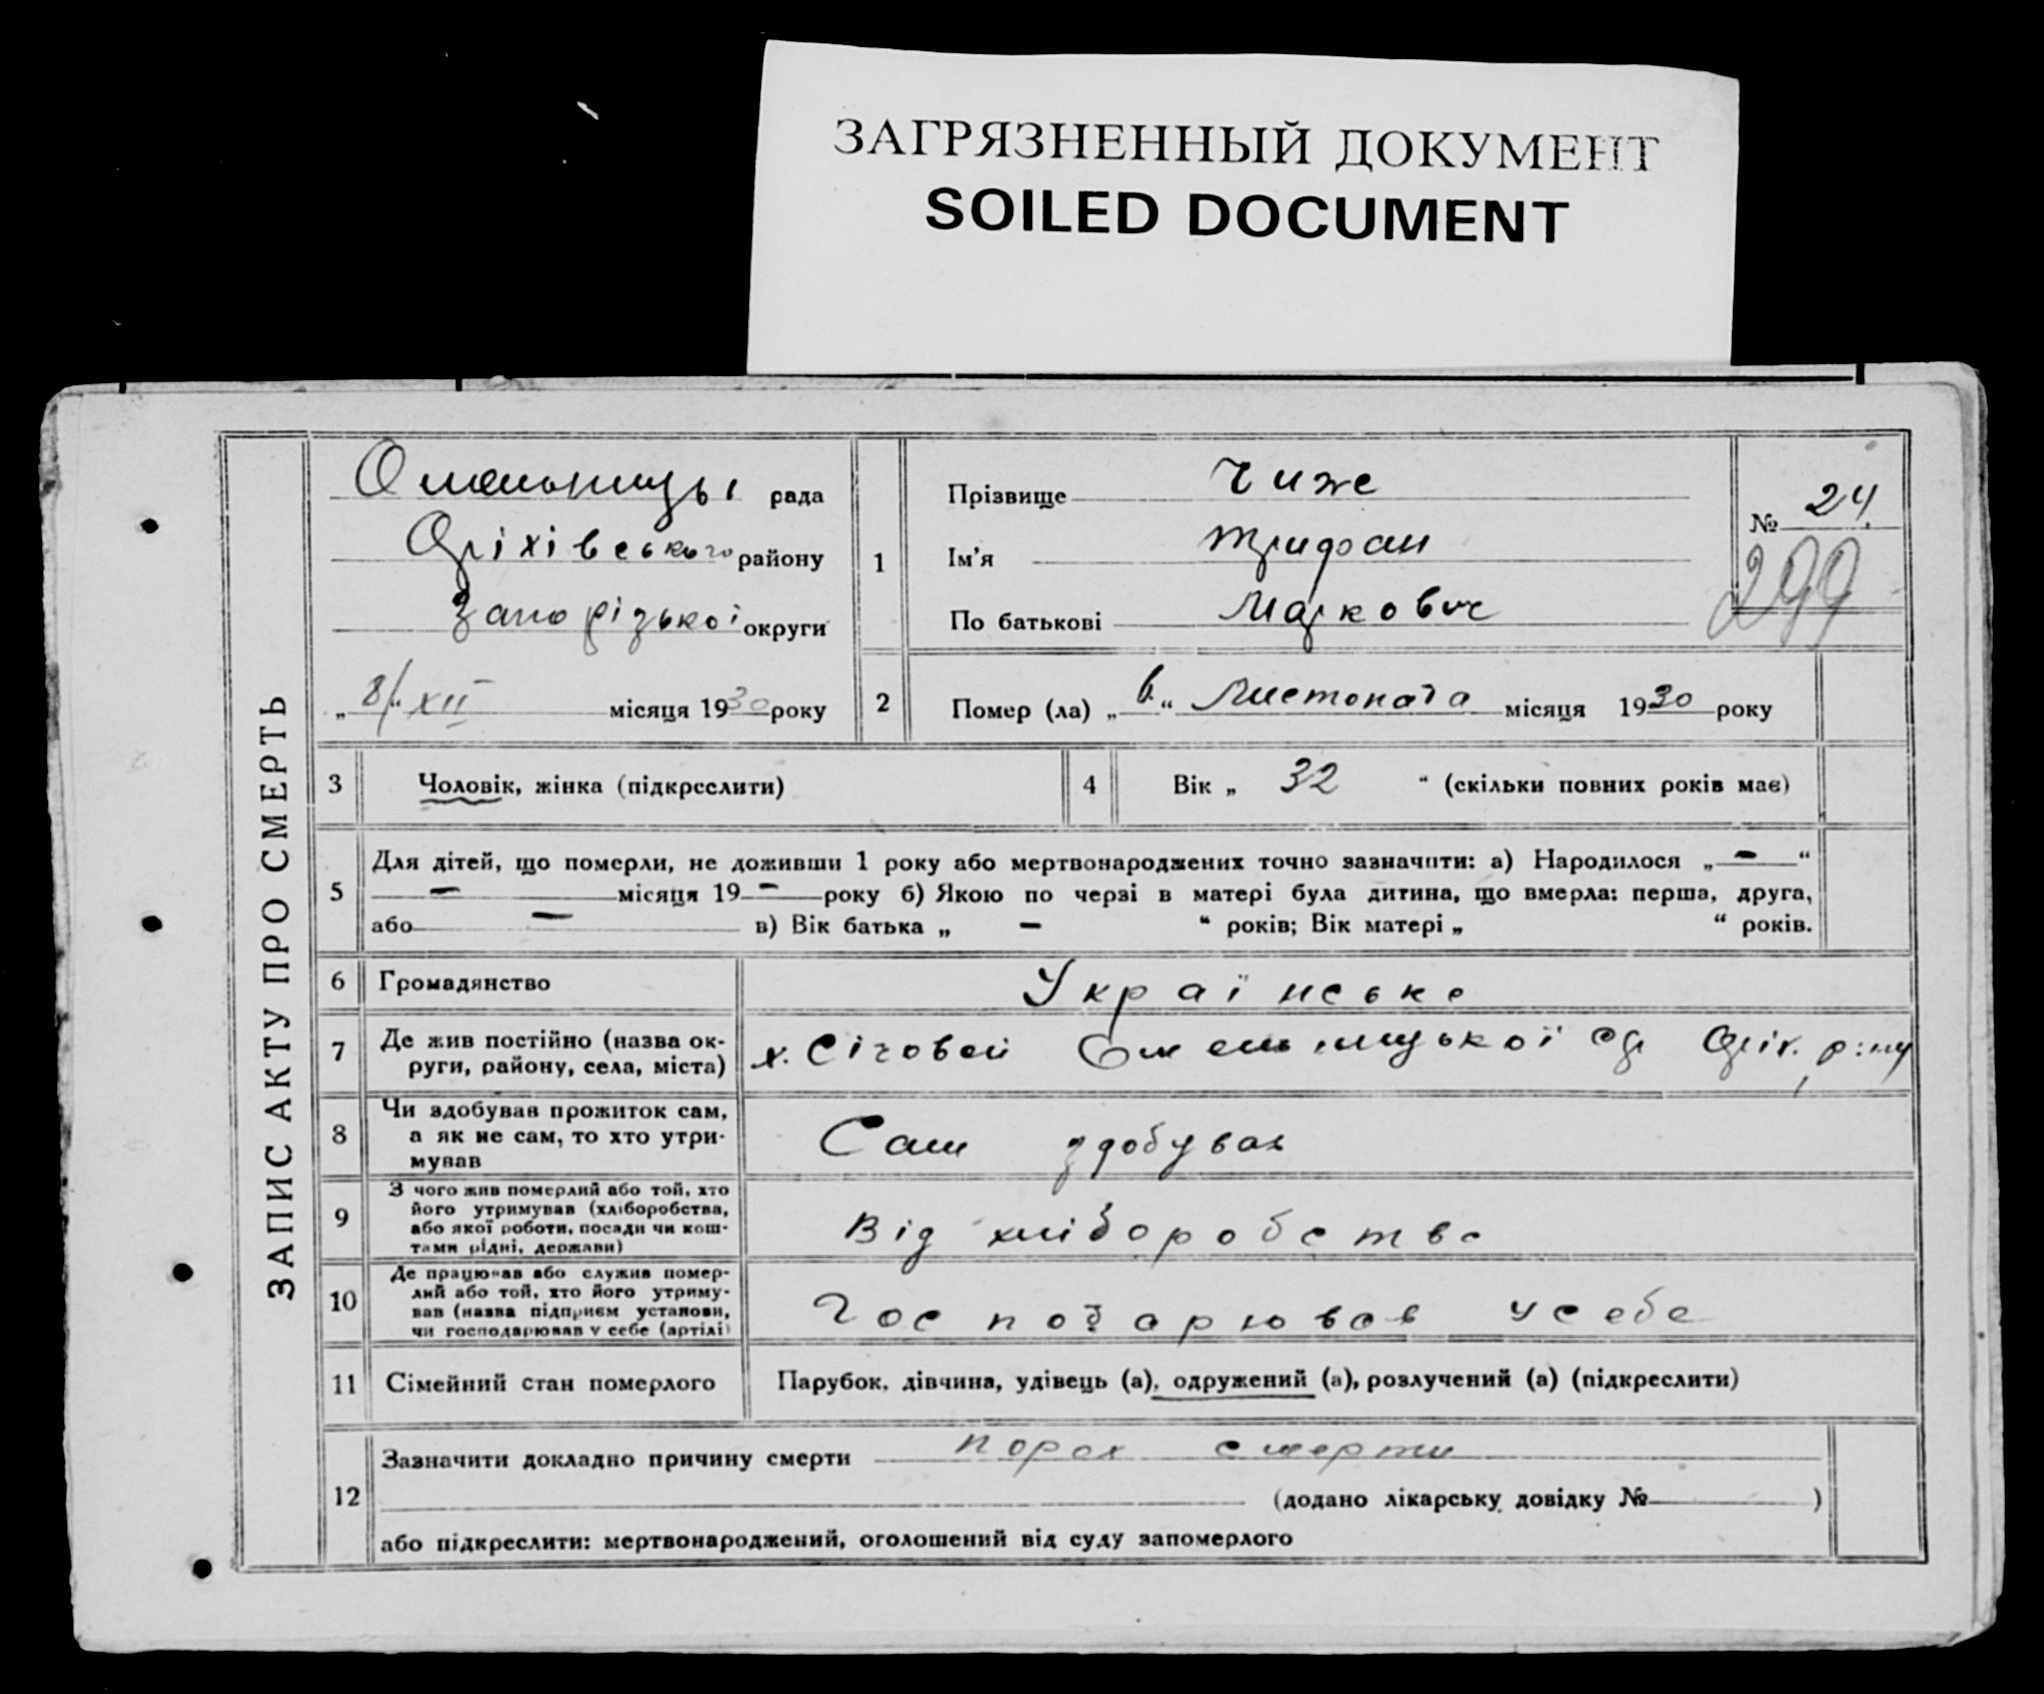 ЗАГРЯЗНЕННЫЙ ДОКУМЕНТ
SOILED DOCUMENT
ЗАПИС АКТУ ПРО СМЕРТЬ
рада
Оріхівського району
Запорізької округи
„8/“ XII місяця 1930 року
1
Прізвище Чиже
Ім’я Трифон
По батькові Маркович
№ 24
299
2
Помер (ла) „6“ Листопада місяця 1930 року
3 Чоловік, жінка (підкреслити)
4 Вік „ 32 “ (скільки повних років має)
5 Для дітей, що померли, не доживши 1 року або мертвонароджених точно зазначити: а) Народилося „ — “
— місяця 19 — року б) Якою по черзі в матері була дитина, що вмерла: перша, друга,
або — в) Вік батька „ — “ років; Вік матері „ “ років.
6 Громадянство Українське
7 Де жив постійно (назва ок-
руги, району, села, міста)
х. Січовей Оріх. р:ну
8 Чи здобував прожиток сам,
а як не сам, то хто утри-
мував
Сам здобував
9 З чого жив померлий або той, хто
його утримував (хліборобства,
або якої роботи, посади чи кош-
тами рідні, держави)
Від хліборобства
10 Де працював або служив помер-
лий або той, хто його утриму-
вав (назва підприєм установи,
чи господарював у себе (артілі)
Господарював у себе
11 Сімейний стан померлого Парубок, дівчина, удівець (а), одружений (а), розлучений (а) (підкреслити)
12 Зазначити докладно причину смерти порох смерти
(додано лікарську довідку № )
або підкреслити: мертвонароджений, оголошений від суду запомерлого